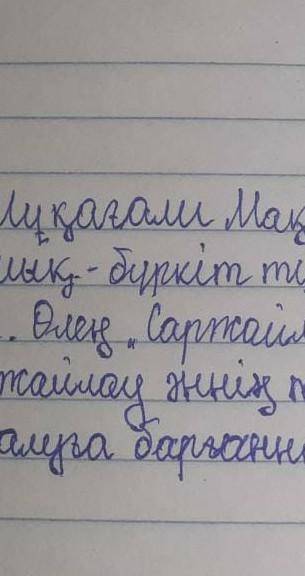 Мұқағали Мақ
лық - бүркіт ту
. Өлең „Саржайл
жайлау әннің т
алуға барғанн